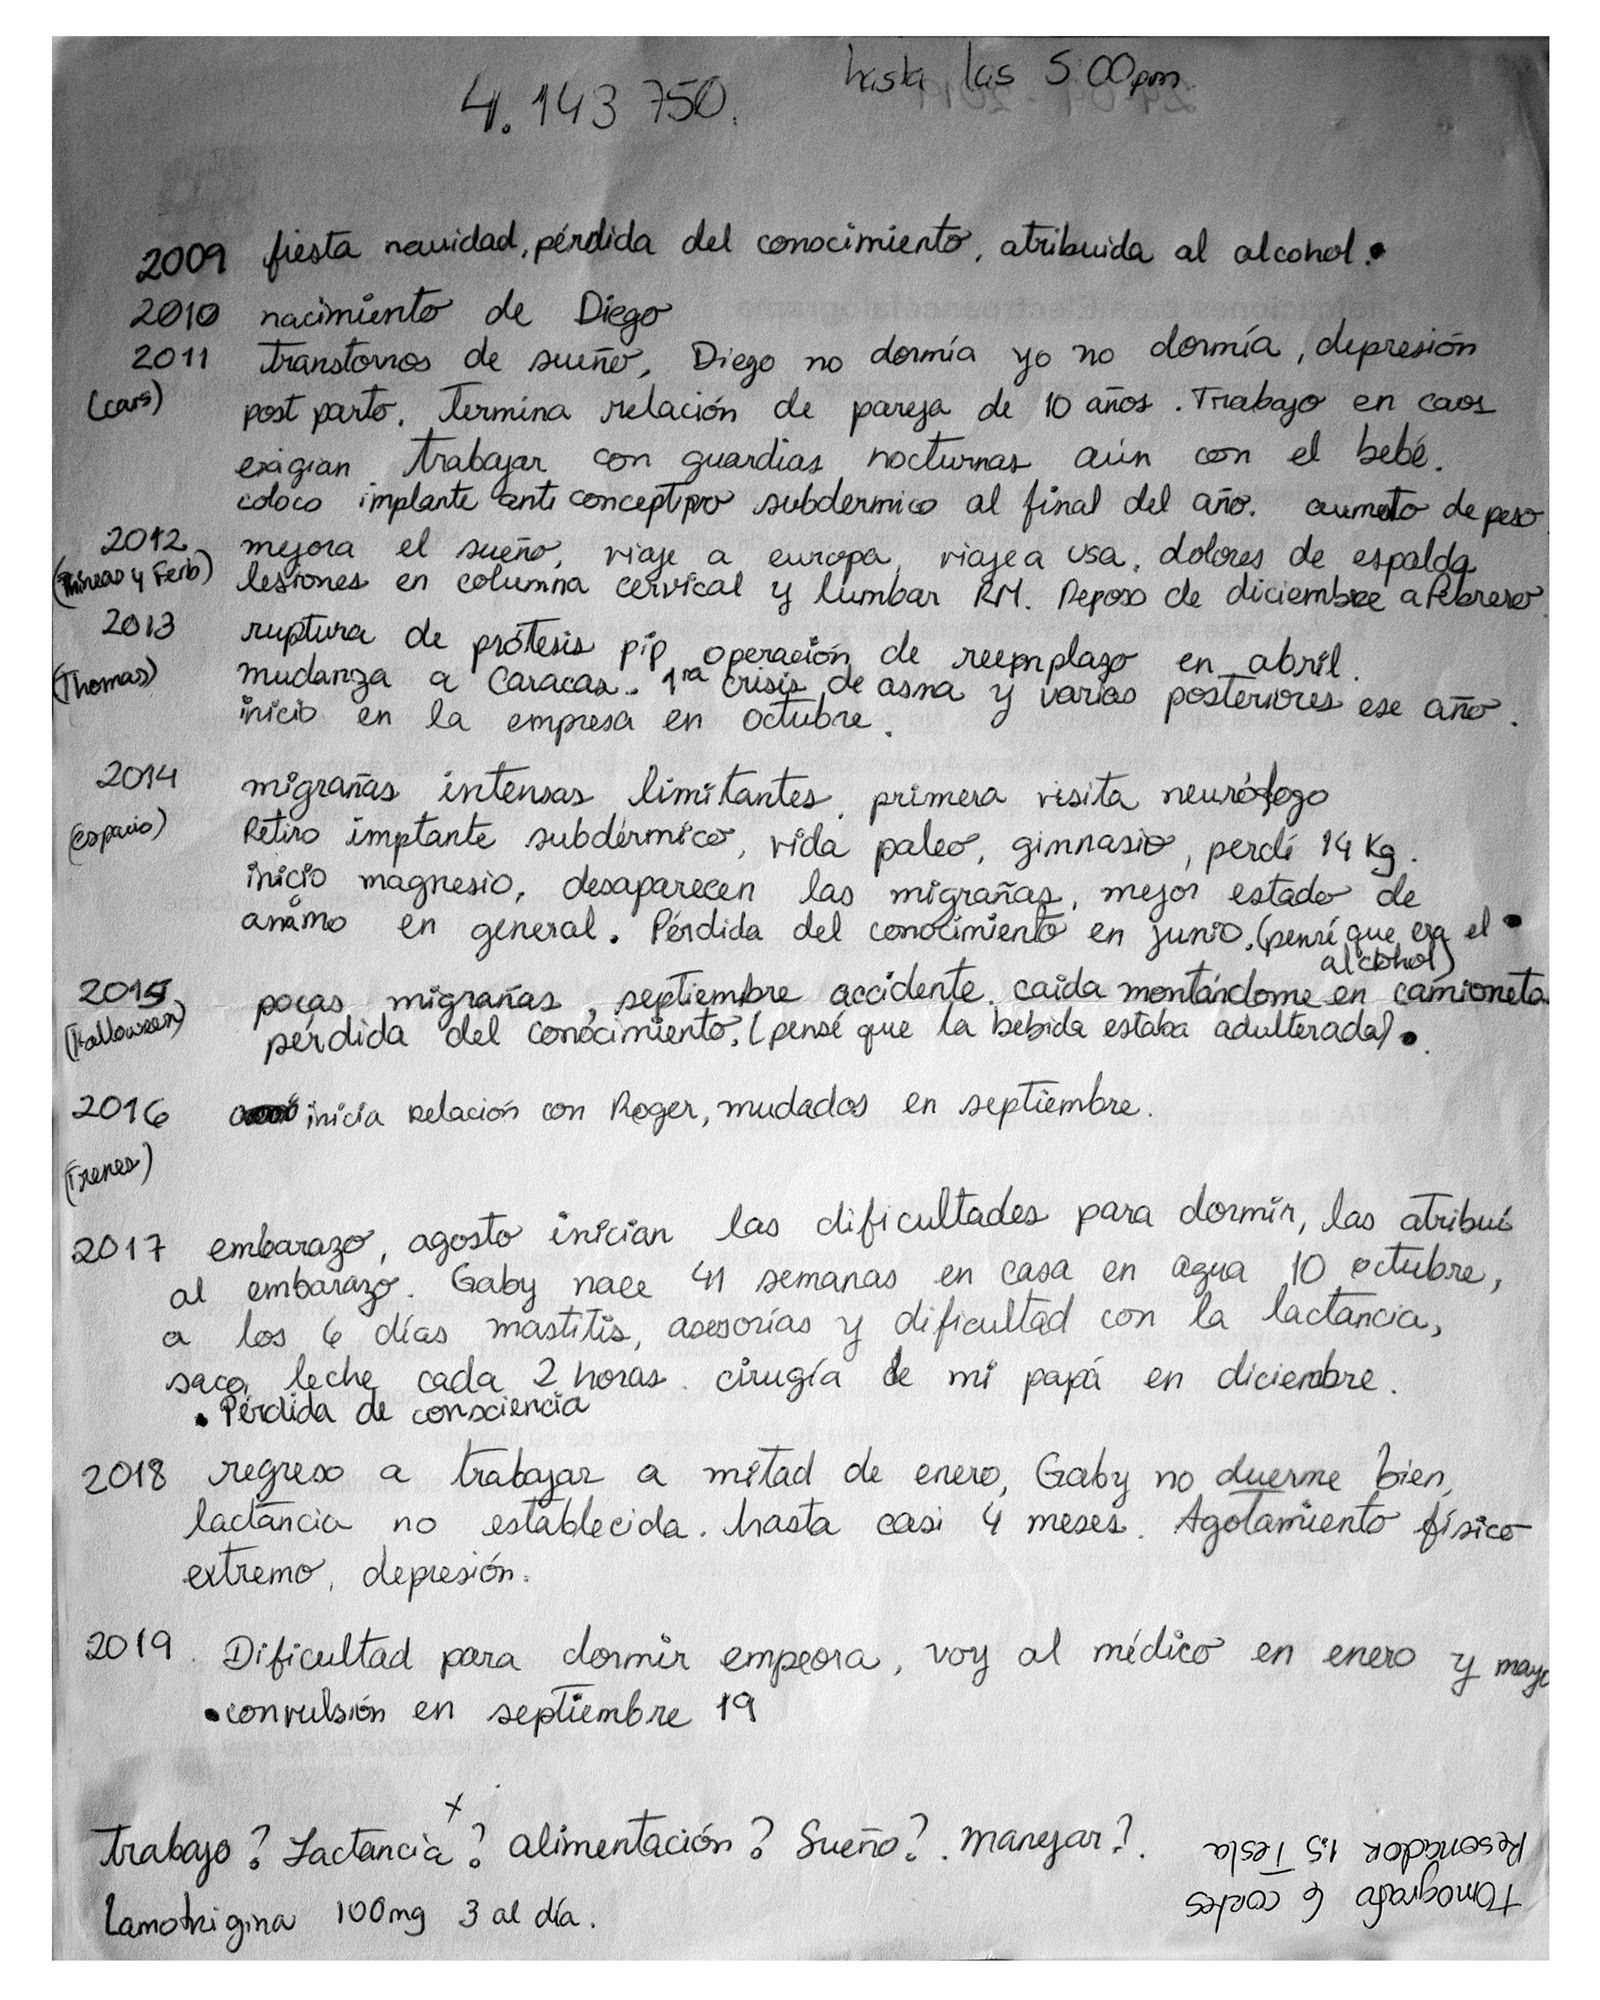 hasta las 5:00pm
4.143750.
2009 fiesta navidad, pérdida del conocimiento, atribuida al alcohol.
2010 nacimiento de Diego
2011 transtornos de sueño, Diego no dormía yo no dormía, depresión
(cars) post parto. Termina relación de pareja de 10 años. Trabajo en caos
exigian trabajar con guardias nocturnas aún con el bebé.
coloco implante anti conceptivo subdermico al final del año. aumeto de peso
2012 mejora el sueño, viaje a europa, viaje a usa, dolores de espalda
(Phineas y Ferb) lesiones en columna cervical y lumbar RM. Reposo de diciembre a febrero
2013 ruptura de prótesis pip operación de reemplazo en abril.
(Thomas) mudanza a Caracas. 1ra crisis de asma y varias posteriores ese año.
inicio en la empresa en octubre.
2014 migrañas intensas limitantes, primera visita neurólogo
(espacio) Retiro implante subdérmico, vida paleo, gimnasio, perdí 14 Kg.
inicio magnesio, desaparecen las migrañas, mejor estado de
animo en general. Pérdida del conocimiento en junio. (pensé que era el
alcohol)
2015 pocas migrañas, septiembre accidente. caída montándome en camioneta
(Halloween) pérdida del conocimiento. (pensé que la bebida estaba adulterada)
2016 inicia relación con Roger, mudados en septiembre.
(Trenes)
2017 embarazo, agosto inician las dificultades para dormir, las atribuí
al embarazo. Gaby nace 41 semanas en casa en agua 10 octubre,
a los 6 días mastitis, asesorías y dificultad con la lactancia,
saco leche cada 2 horas. cirugía de mi papá en diciembre.
• Pérdida de consciencia
2018 regreso a trabajar a mitad de enero, Gaby no duerme bien,
lactancia no establecida. hasta casi 4 meses. Agotamiento físico
extremo, depresión.
2019. Dificultad para dormir empeora, voy al médico en enero y mayo
• convulsión en septiembre 19
Trabajo? Lactancia? alimentación? Sueño? Manejar?
Lamotrigina 100mg 3 al día.
Tomografo 6 cortes
Resonador 1.5 Tesla